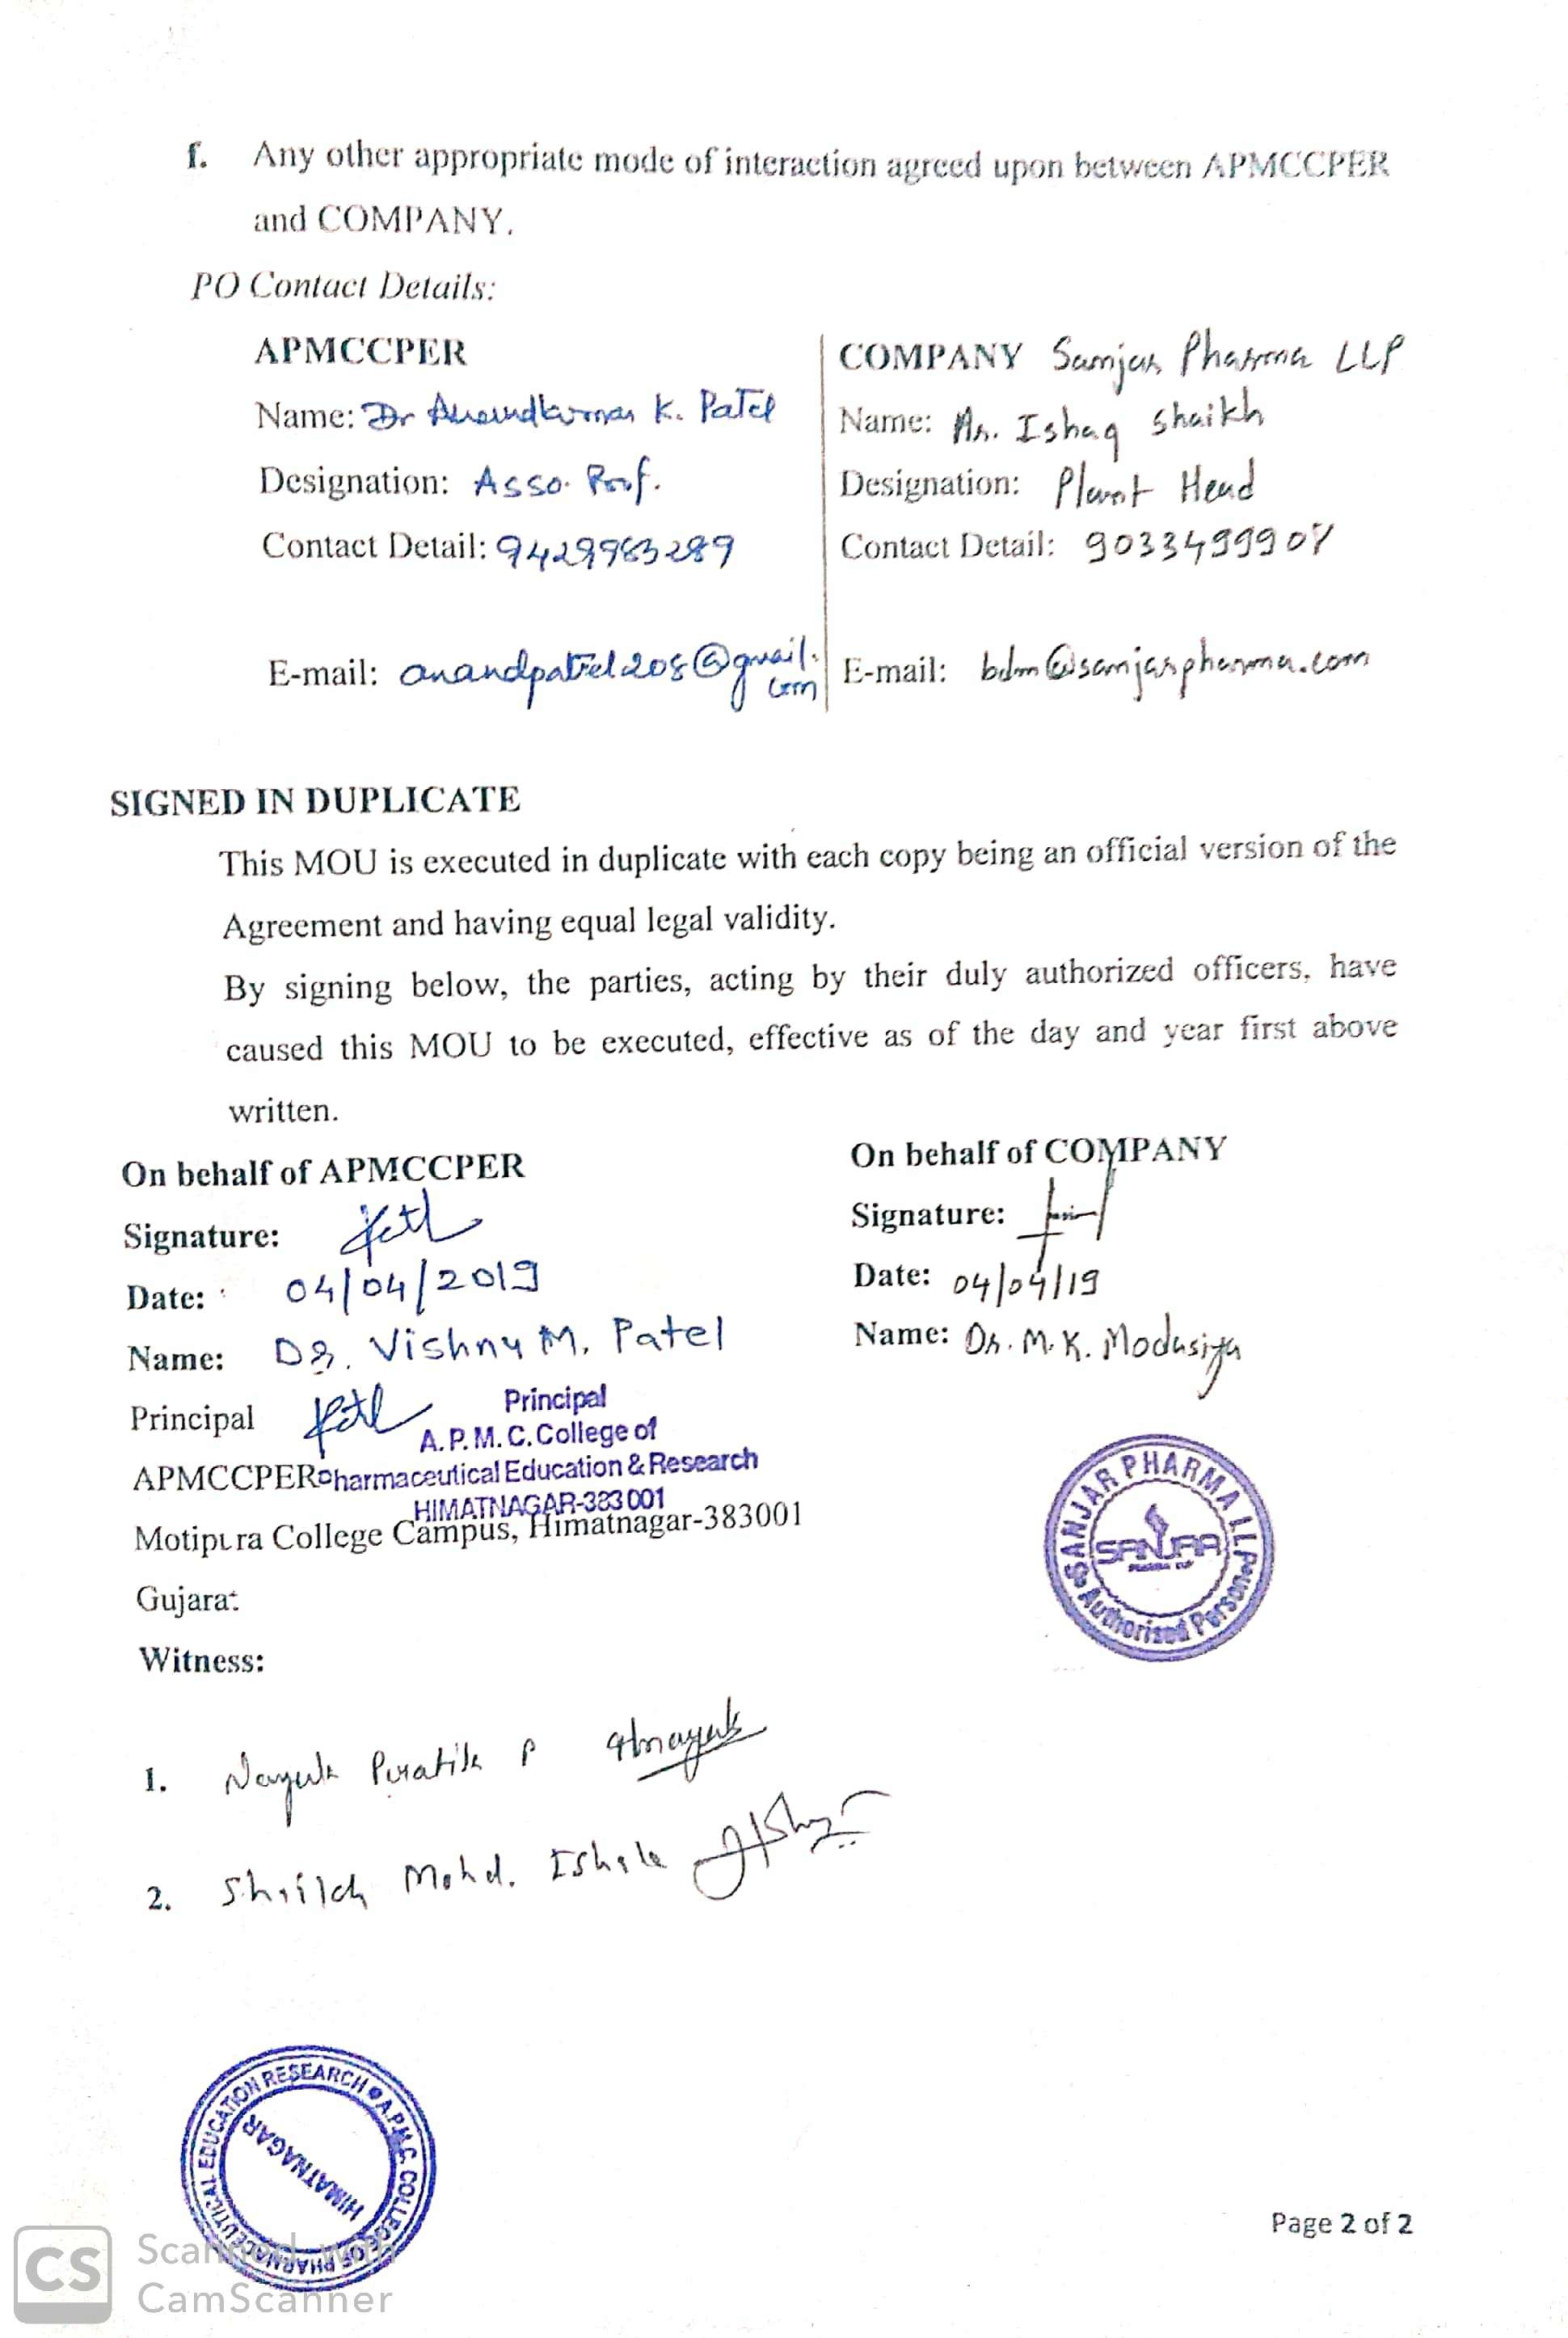 f. Any other appropriate mode of interaction agreed upon between APMCCPER
and COMPANY.
PO Contact Details:
APMCCPER
Name: Dr Anandkumar K. Patel
Designation: Asso. Prof.
Contact Detail: 9429983289
E-mail: anandpatel208@gmail.com
COMPANY Sanjar Pharma LLP
Name: Mr. Ishaq Shaikh
Designation: Plant Head
Contact Detail:
E-mail: bdm@sanjarpharma.com
SIGNED IN DUPLICATE
This MOU is executed in duplicate with each copy being an official version of the
Agreement and having equal legal validity.
By signing below, the parties, acting by their duly authorized officers, have
caused this MOU to be executed, effective as of the day and year first above
written.
On behalf of APMCCPER
Signature:
Date: 04/04/2019
Name: Dr. Vishnu M. Patel
Principal
Principal
A.P.M.C.College of
Pharmaceutical Education & Research
HIMATNAGAR-383 001
APMCCPER
Motipura College Campus, Himatnagar-383001
Gujarat
On behalf of COMPANY
Signature:
Date: 04/04/19
Name: Dr. M.K. Modasiya
SANJAR PHARMA LLP
SANJAR
PHARMA LLP
Authorised Person
Witness:
1. Nayak Pratik P
2. Shaikh Mohd. Ishak
A.P.M.C. COLLEGE OF PHARMACEUTICAL EDUCATION RESEARCH
HIMATNAGAR
Page 2 of 2
CS
Scanned with
CamScanner